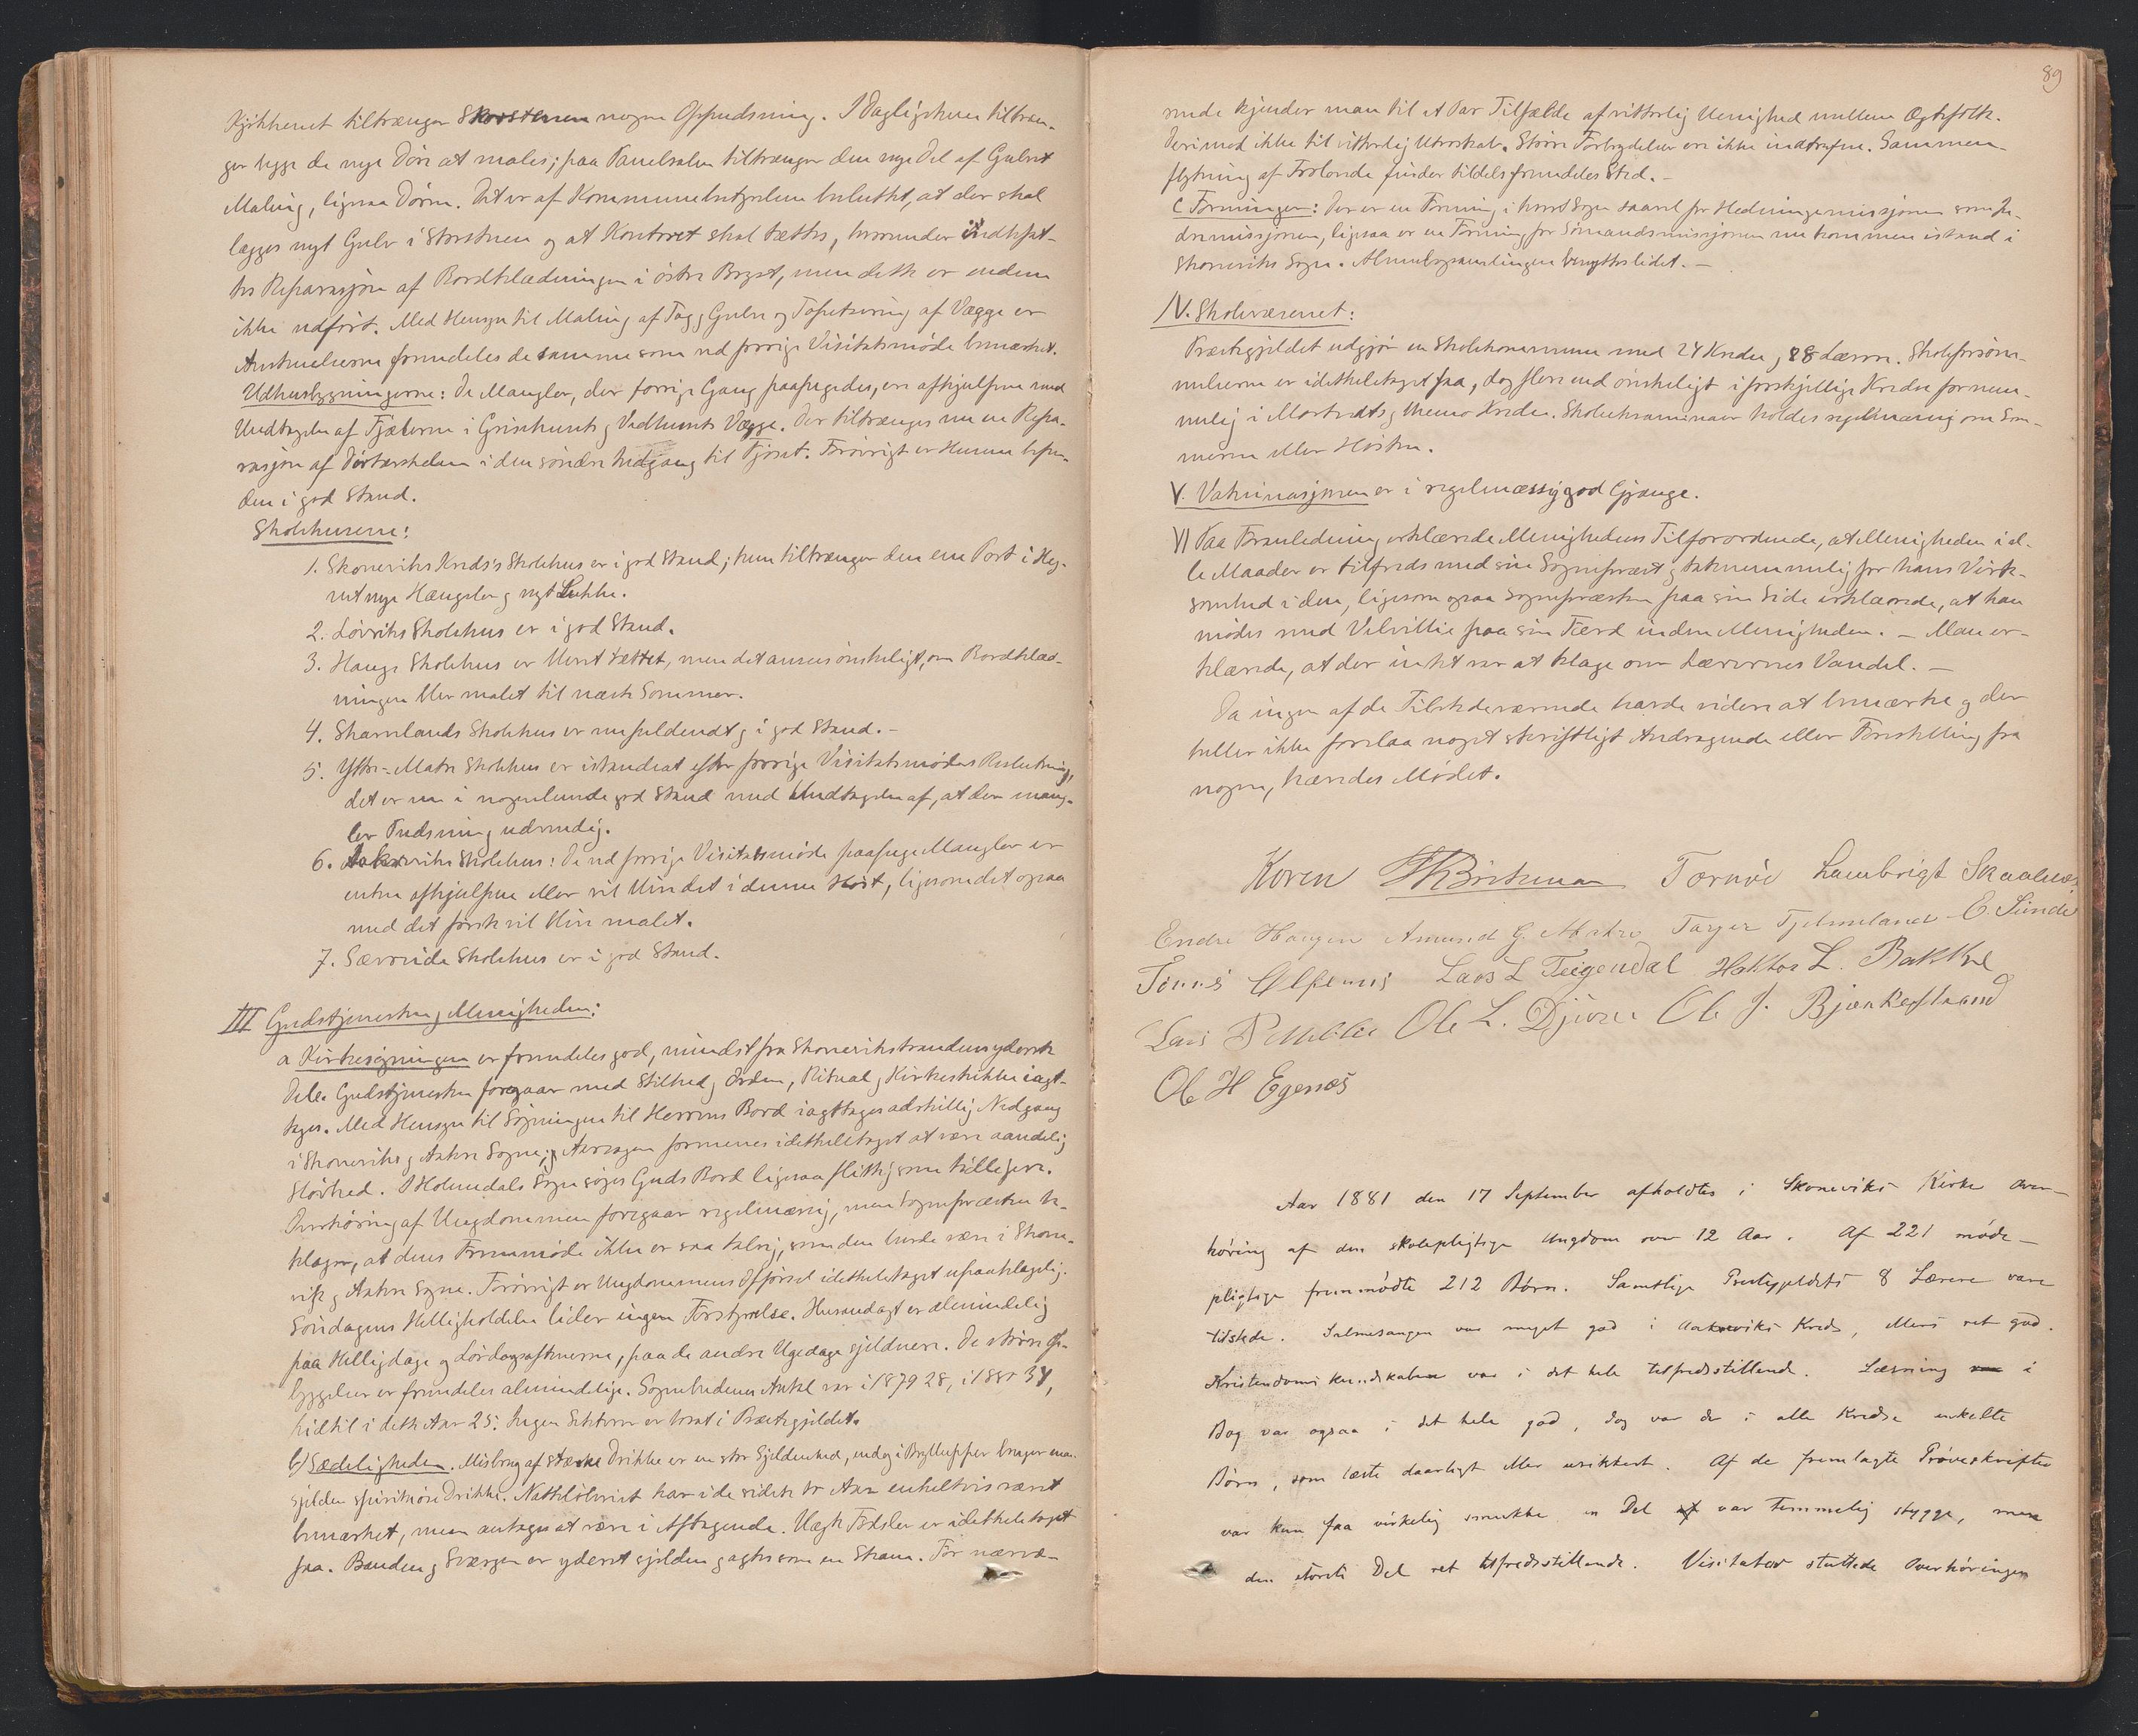 Kjökkenet tiltrænger Skorstenen nogen Oppudsning. I Dagligstuen tiltræn-
ger begge de nye Döre at males; paa Panelsalen tiltrænger den nye Del af Gulvet
Maling, ligesaa Dören. Det er af Kommunebestyrelsen besluttet, at der skal
lægges nyt Gulv i Storstuen og at Kontoret skal tættes, hvorunder indbefat-
tes Reparasjon af Bordklædningen i östre Bryst, men dette er endnu
ikke udfört. Med Hensyn til Maling af Tag, Gulve og Tapetsering af Vægge er
Anskuelserne fremdeles de samme som ved forrige Visitatsmöde bemærket.
Udhusbygningerne: De Mangler, der forrige Gang paapegedes, ere afhjulpne med
Undtagelse af Fjælerne i Grisehusets og Vedhusets Vægge. Der tiltrænges nu en Repa-
rasjon af Dörtærskelen i den söndre Indgang til Fjöset. Forövrigt er Husene befun-
den i god Stand.
Skolehusene:
1. Skoneviks Kreds's Skolehus er i god Stand; kun tiltrænger den ene Port i Heg-
net nye Hængsler og nyt Lukke.
2. Lövviks Skolehus er i god Stand.
3. Haugs Skolehus er blevet tættet, men det ansees önskeligt, om Bordklæd-
ningen blev malet til næste Sommer.
4. Skarnlands Skolehus er nu fuldendt og i god Stand. -
5. Ytre-Matre Skolehus er istandsat efter forrige Visitatsmödes Beslutning,
det er nu i nogenlunde god Stand med Undtagelse af, at den mang-
ler Pudsning udvendig.
6. Aakreviks Skolehus: De ved forrige Visitatsmöde paapegede Mangler er
enten afhjulpne eller vil blive det i denne Höst, ligesom det ogsaa
med det förste vil blive malet.
7. Sævereide Skolehus er i god Stand.
III Gudstjenesten og Menigheden:
a Kirkesögningen er fremdeles god, mindst fra Skonevikstrandens yderste
Dele. Gudstjenesten foregaar med Stilhed og Orden, Ritual og Kirkeskikke iagt-
tages. Med Hensyn til Sögningen til Herrens Bord iagttages adskillig Nedgang
i Skoneviks og Aakre Sogne; Aarsagen formenes idetheletaget at være aandelig
Slövhed. I Holmedals Sogn söges Guds Bord ligesaa flittig som tidligere.
Overhöring af Ungdommen foregaar regelmæssig, men Sognepræsten be-
klager, at dens Fremmöde ikke er saa talrig, som den burde være i Skone-
vik og Aakre Sogne. Forövrigt er Ungdommens Opförsel idetheletaget upaaklagelig.
Söndagens Helligholdelse lider ingen Forstyrrelse. Husandagt er almindelig
paa Helligdage og Lördagsaftenerne, paa de andre Ugedage sjeldnere. De större Op-
byggelser er fremdeles almindelige. Sognebudenes Antal var i 1879 28, i 1880 34,
hidtil i dette Aar 25. Ingen Sekterer er bosat i Præstegjeldet.
b) Sædeligheden. Misbrug af stærke Drikke er en stor Sjeldenhed, endog i Bryllupper bruges man
sjelden spirituöse Drikke. Natteloberiet har i de sidste to Aar enkeltvis været
bemærket, men antages at være i Aftagende. Uægte Födsler er idetheletaget
faa. Banden og Sværgen er yderst sjelden og agtes som en Skam. For nærvæ-
89
rende kjender man til et Par Tilfælde af vitterlig Uenighed mellem Ægtefolk.
Derimod ikke til vitterlig Utroskab. Större Forbrydelser ere ikke indtrufne. Sammen-
flytning af Trolovede finder tildels fremdeles Sted. -
c Foreninger: Der er en Forening i hvert Sogn saavel for Hedningemissjonen som In-
dremissjonen, ligesaa er en Forening for Sömandsmissjonen nu kommen istand i
Skoneviks Sogn. Almuebogsamlingen benyttes lidet. -
IV. Skolevæsenet:
Præstegjeldet udgjör en Skolekommune med 24 Kredse og 8 Lærere. Skoleforsöm-
melserne er idetheletaget faa, dog flere end önskeligt i forskjellige Kredse fornem-
melig i Kredse. Skoleeksaminaer holdes regelmæssig om Som-
meren eller Hösten.
V. Vaksinasjonen er i regelmæssig god Gjænge.
VI Paa Foranledning erklærede Menighedens Tilforordnede, at Menigheden i al-
le Maader er tilfreds med sin Sognepræst og taknemmelig for hans Virk-
somhed i den, ligesom ogsaa Sognepræsten paa sin Side erklærede, at han
mödes med Velvillie paa sin Færd inden Menigheden. - Man er-
klærede, at der intet var at klage over Lærernes Vandel. -
Da ingen af de Tilstedeværende havde videre at bemærke og der
heller ikke forelaa noget skriftligt Andragende eller Forestilling fra
nogen, hævedes Mödet.
Koren Tornöe Lambrigt Skaalnæs
Endre Haugen Amund G Matre Torjer Tjelmeland E. Sunde
Lars L Teigendal L. Bakke
Lars Ole L. Djuve Ole J. Bjørkestrand
Ole H Egenæs
Aar 1881 den 17 September afholdtes i Skoneviks Kirke Over-
höring af den skolepligtige Ungdom over 12 Aar. Af 221 möde-
pligtige fremmödte 212 Börn. Samtlige Præstegjeldets 8 Lærere vare
tilstede. Salmesangen var meget god i Aakreviks Kreds, ellers ret god.
Kristendomskundskaben var i det hele tilfredsstillende. Læsning i
Bog var ogsaa i det hele god, dog var der i alle Kredse enkelte
Börn, som læste daarligt eller usikkert. Af de fremlagte Pröveskrifter
var kun faa virkelig smukke en Del var temmelig stygge, men
den störste Del ret tilfredsstillende. Visitator sluttede Overhöringen